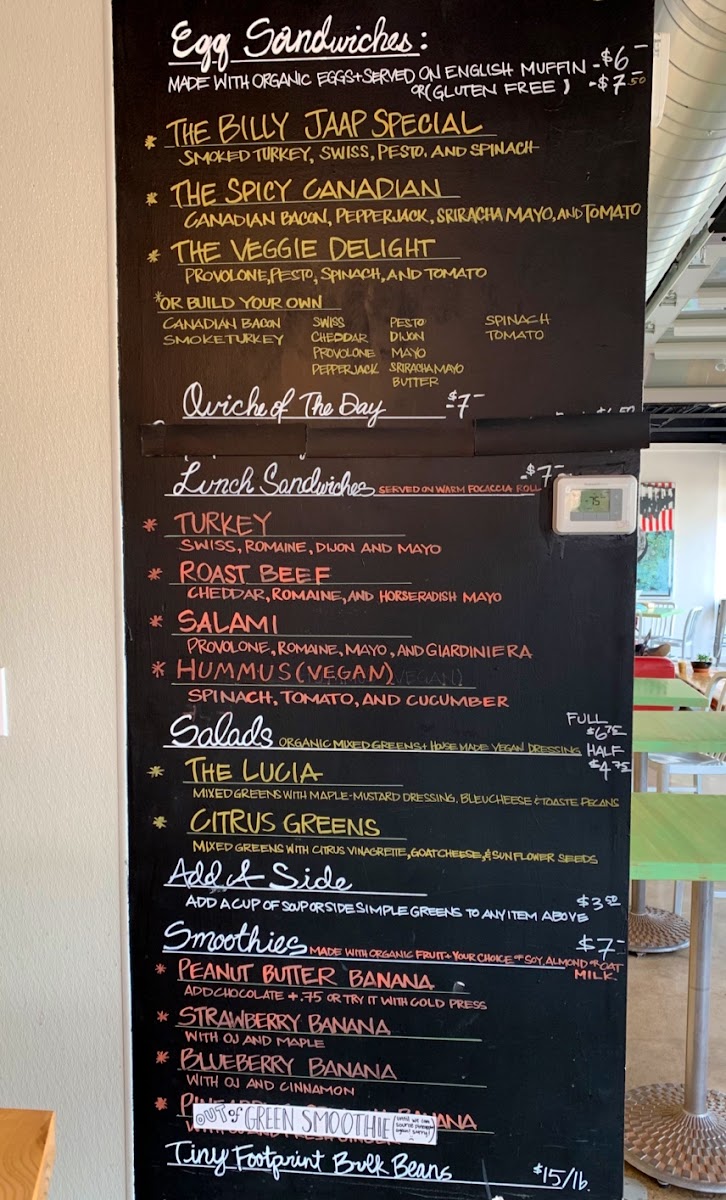 Egg Sandwiches:
MADE WITH ORGANIC EGGS + SERVED ON ENGLISH MUFFIN - $6 -
OR (GLUTEN FREE) - $7.50
* THE BILLY JAAP SPECIAL
SMOKED TURKEY, SWISS, PESTO, AND SPINACH
* THE SPICY CANADIAN
CANADIAN BACON, PEPPERJACK, SRIRACHA MAYO, AND TOMATO
* THE VEGGIE DELIGHT
PROVOLONE, PESTO, SPINACH, AND TOMATO
*OR BUILD YOUR OWN
CANADIAN BACON SWISS PESTO SPINACH
SMOKETURKEY CHEDDAR DIJON TOMATO
PROVOLONE MAYO
PEPPERJACK SRIRACHA MAYO
BUTTER
Quiche of The Day - $7 -
Lunch Sandwiches SERVED ON WARM FOCACCIA ROLL - $7 -
75
* TURKEY
SWISS, ROMAINE, DIJON AND MAYO
* ROAST BEEF
CHEDDAR, ROMAINE, AND HORSERADISH MAYO
* SALAMI
PROVOLONE, ROMAINE, MAYO, AND GIARDINIERA
* HUMMUS (VEGAN)
SPINACH, TOMATO, AND CUCUMBER
FULL
$6.75
Salads ORGANIC MIXED GREENS + HOUSE MADE VEGAN DRESSING HALF
$4.75
* THE LUCIA
MIXED GREENS WITH MAPLE-MUSTARD DRESSING, BLEU CHEESE & TOASTE PECANS
* CITRUS GREENS
MIXED GREENS WITH CITRUS VINAGRETTE, GOAT CHEESE, & SUNFLOWER SEEDS
Add A Side
ADD A CUP OF SOUP OR SIDE SIMPLE GREENS TO ANY ITEM ABOVE $3.50
Smoothies MADE WITH ORGANIC FRUIT + YOUR CHOICE OF SOY, ALMOND OR OAT MILK $7 -
* PEANUT BUTTER BANANA
ADD CHOCOLATE + .75 OR TRY IT WITH COLD PRESS
* STRAWBERRY BANANA
WITH OJ AND MAPLE
* BLUEBERRY BANANA
WITH OJ AND CINNAMON
OUT of GREEN SMOOTHIE (until we can source pineapple again! sorry!)
Tiny Footprint Bulk Beans $15/lb.